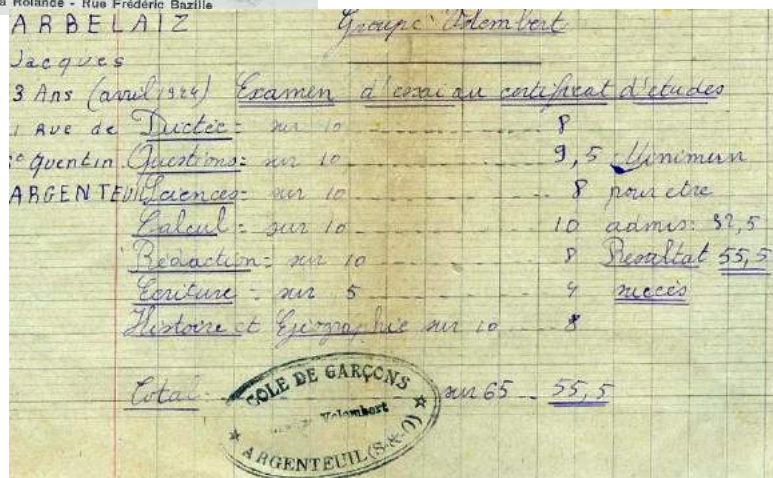 a Rolande - Rue Frédéric Bazille
ARBELAIZ Groupe Volembert
Jacques
3 Ans (avril 1924) Examen d'essai au certificat d'etudes
1 Rue de Dictée = sur 10 8
St Quentin Questions = sur 10 9,5 Minimum
ARGENTEUI Sciences = sur 10 8 pour etre
Calcul = sur 10 10 admis: 32,5
Rédaction = sur 10 8 Resultat 55,5
Ecriture = sur 5 4 succès
Histoire et Géographie sur 10 8
Total sur 65 55,5
COLE DE GARÇONS
Volembert
ARGENTEUIL (S-&-O)